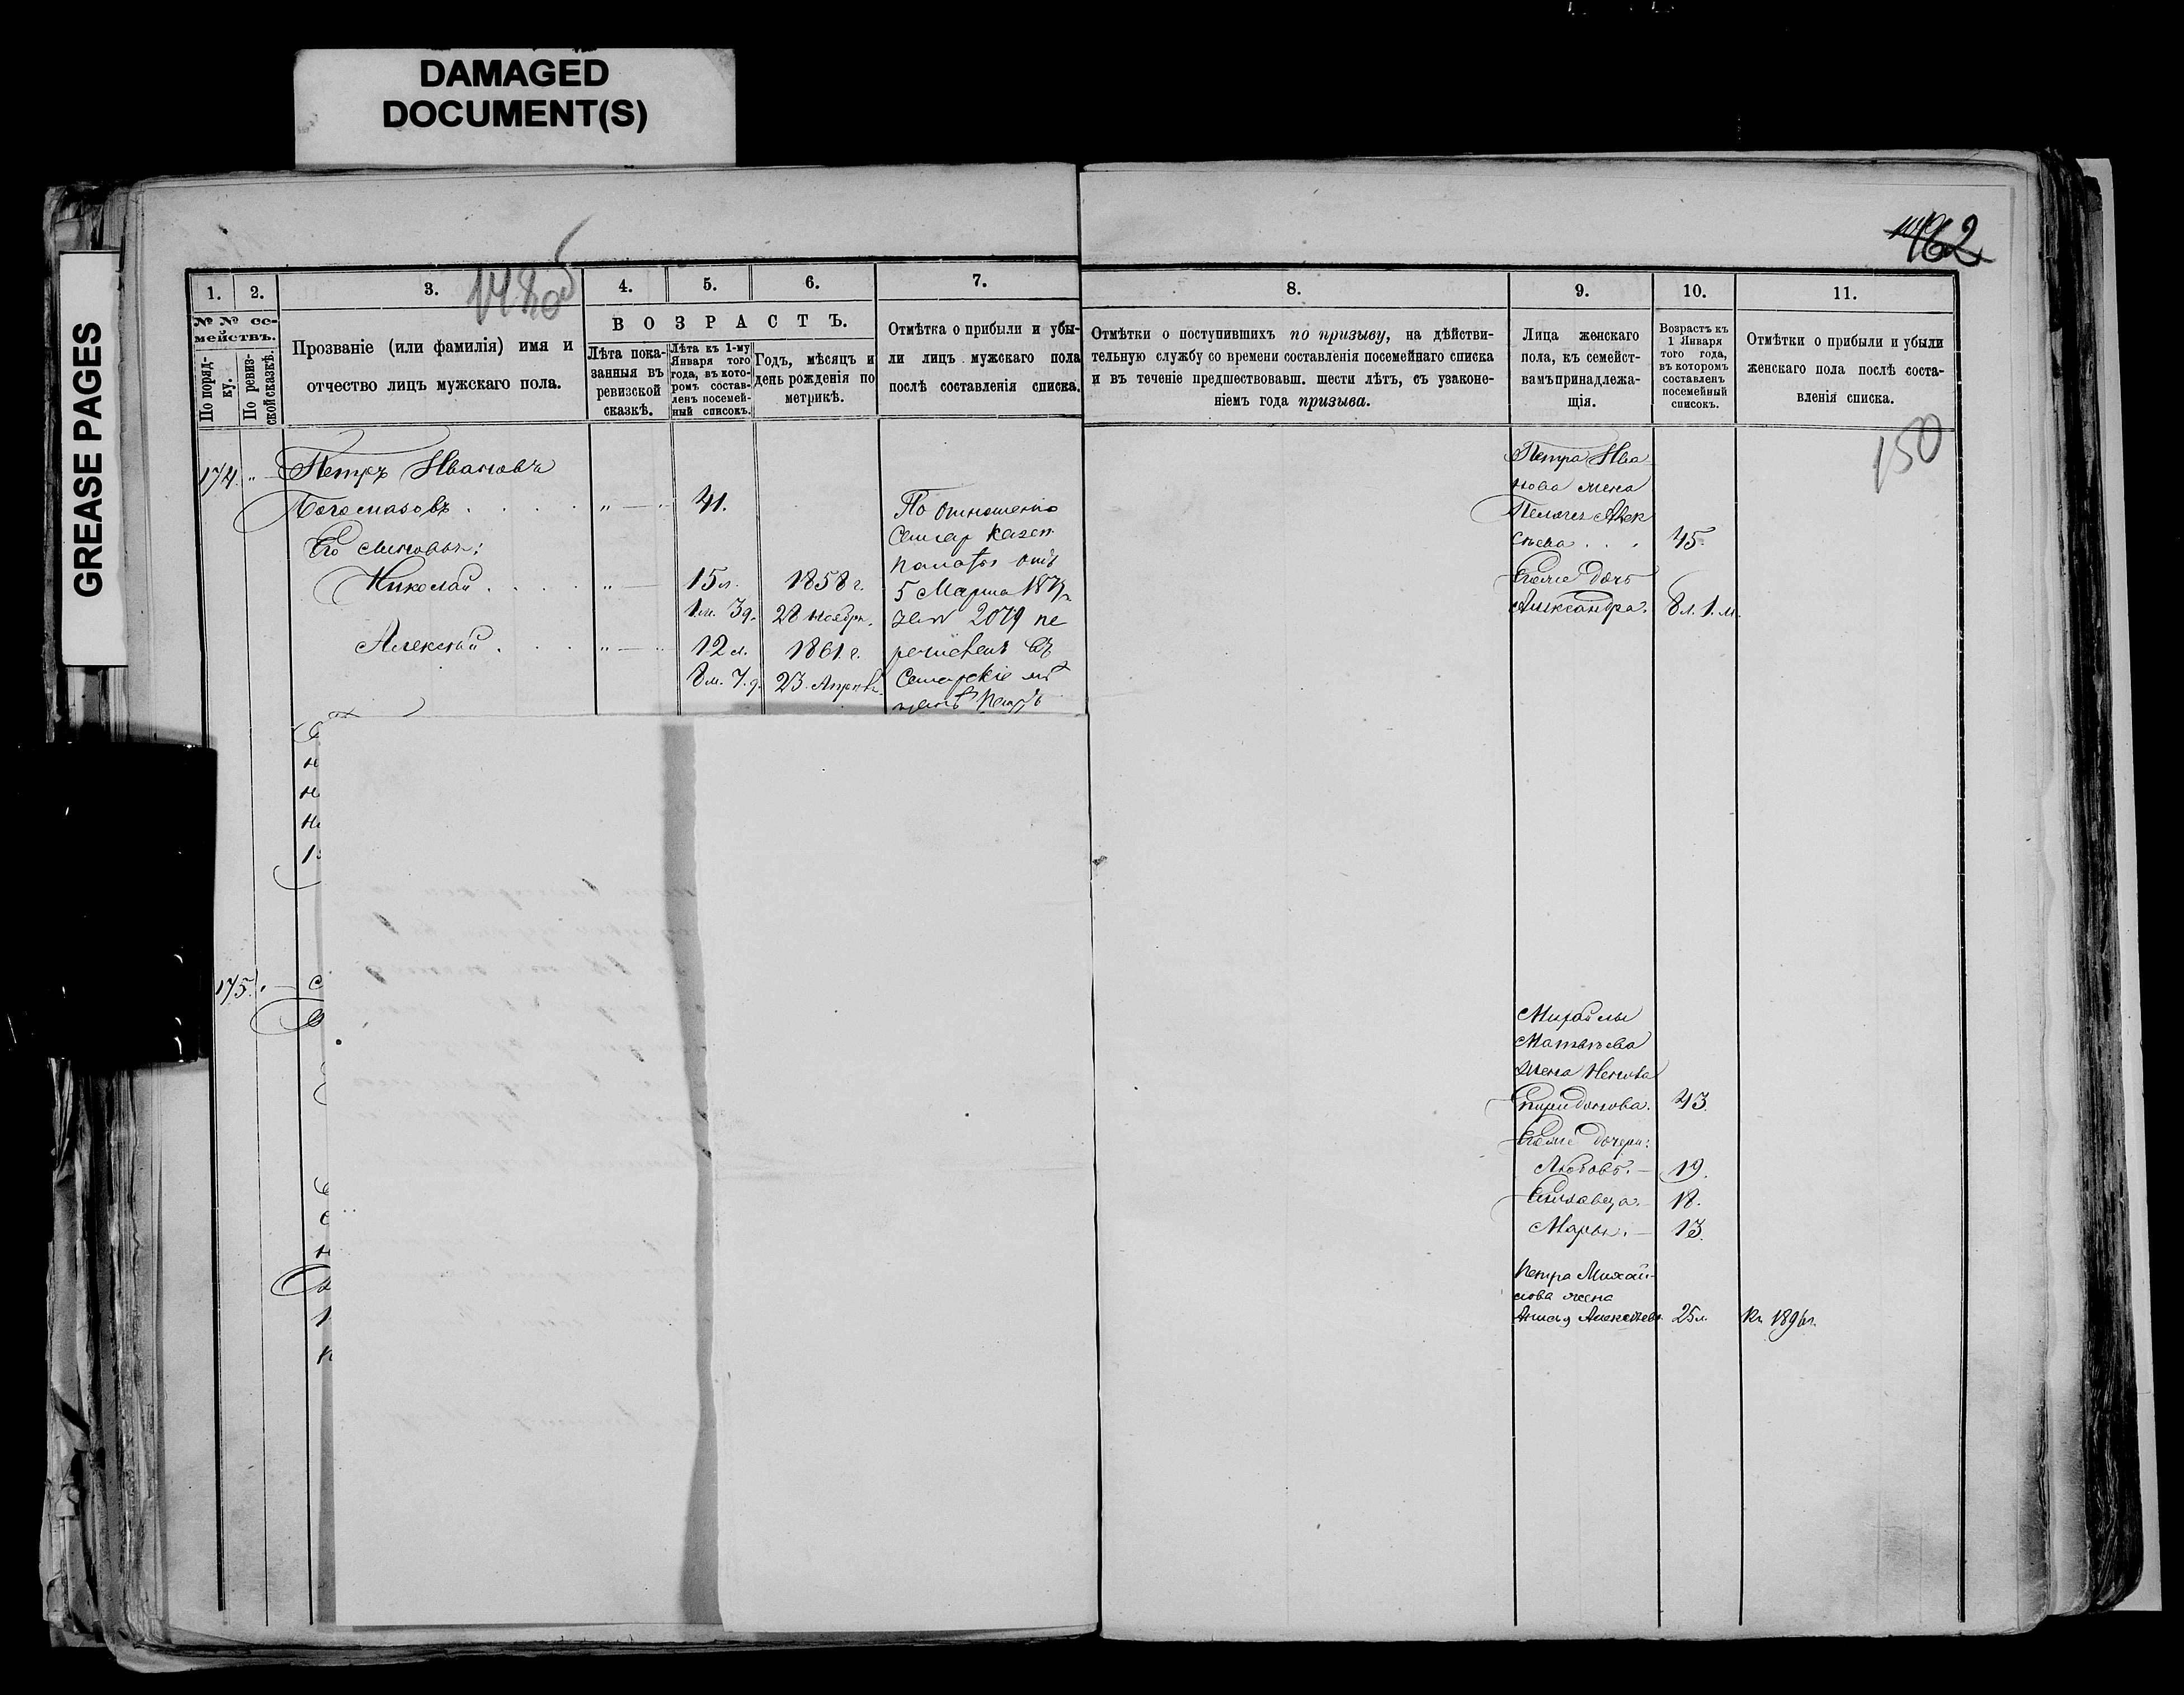 DAMAGED
DOCUMENT(S)
GREASE PAGES
162
148об
150
1.
2.
3.
4.
5.
6.
7.
8.
9.
10.
11.
№ № се-
мействъ.
По поряд-
ку.
По ревиз-
ской сказкѣ.
Прозваніе (или фамилія) имя и
отчество лицъ мужскаго пола.
ВОЗРАСТЪ.
Лѣта пока-
занныя въ
ревизской
сказкѣ.
Лѣта къ 1-му
Января того
года, въ кото-
ромъ состав-
ленъ посемей-
ный списокъ.
Годъ, мѣсяцъ и
день рожденія по
метрикѣ.
Отмѣтка о прибыли и убы-
ли лицъ мужскаго пола
послѣ составленія списка.
Отмѣтки о поступившихъ по призыву, на дѣйстви-
тельную службу со времени составленія посемейнаго списка
и въ теченіе предшествовавш. шести лѣтъ, съ узаконе-
ніемъ года призыва.
Лица женскаго
пола, къ семейст-
вамъ принадлежа-
щія.
Возрастъ къ
1 Января
того года,
въ которомъ
составленъ
посемейный
списокъ.
Отмѣтки о прибыли и убыли
женскаго пола послѣ соста-
вленія списка.
174. " Петръ Ивановъ
Богомазовъ . . . . " 41.
Его сыновья:
Николай . . . . " 15 л. 1858 г.
1 м. 3 д. 28 ноября.
Алексѣй . . . . " 12 л. 1861 г.
8 м. 7 д. 23 Апрѣля.
По отношенію
Самар Казен
палаты отъ
5 Марта
за № 2079 пе
речисленъ въ
Самарскіе мѣ
щане Петръ
Петра Ива
нова жена
Пелагея Алек
сѣева . . . 45.
Его же дочь
Александра. 8 л. 1 м.
175.
Михайлы
Матвѣева
жена Ненила
Спиридонова. 43.
Его же дочери:
Любовь. 19.
Елизавета. 18.
Марья. 13.
Петра Михай-
лова жена
Алексѣева 25 л. Къ 1896 г.